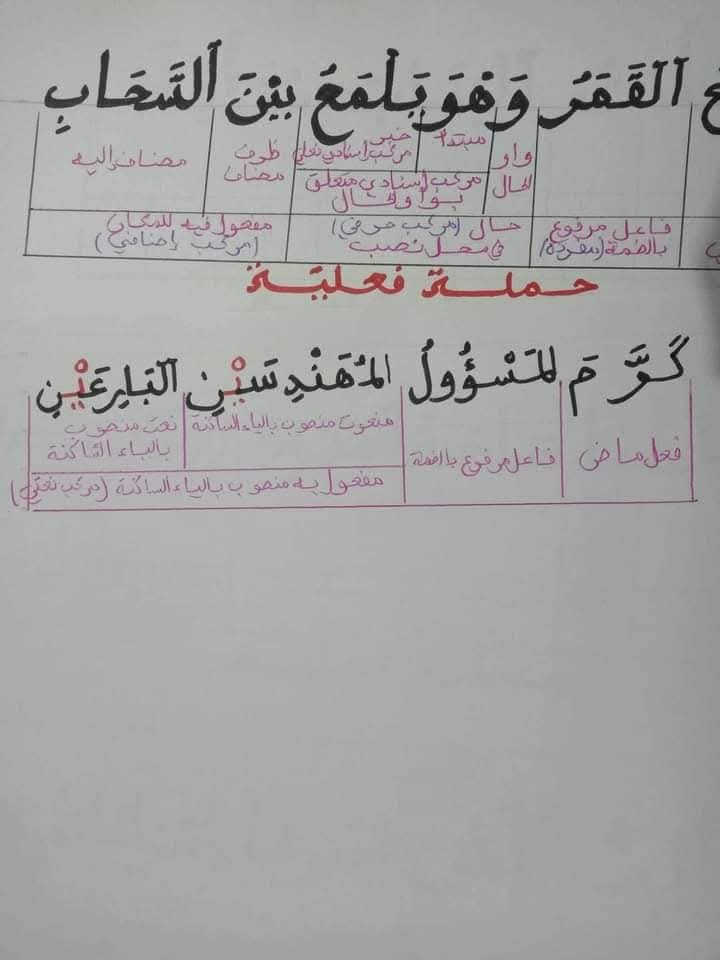 ٱلْقَمَرُ وَهْوَ يَلْمَعُ بَيْنَ ٱلسَّحَابِ
واو الحال
مبتدأ
خبر
مركب إسنادي فعلي
ظرف مضاف
مضاف إليه
مركب إسنادي متعلق
بواو الحال
فاعل مرفوع
بالضمة (مفردة)
حال (مركب حرفي)
في محل نصب
مفعول فيه للمكان
(مركب إضافي)
جملة فعلية
كَرَّمَ المَسْؤُولُ المُهَنْدِسَيْنِ البَارِعَيْنِ
فعل ماض
فاعل مرفوع بالضمة
منعوت منصوب بالياء الساكنة
نعت منصوب
بالياء الساكنة
مفعول به منصوب بالياء الساكنة (مركب نعتي)